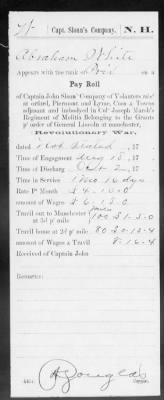 W Capt. Sloan's Company. N. H.
Abraham White
Appears with the rank of Priv on a
Pay Roll
of Captain John Sloan' Company of Volunters rais'
at artford, Piermont and Lyme, Coos a Towns
adjacent and imbodied in Colº Joseph Marsh's
Regiment of Melitia Belonging to the Grants
p' order of General Lincoln at manchester,
Revolutionary War,
dated Not dated, 17
Time of Engagement Aug 18, 17
Time of Discharge Oct 2, 17
Time in Service 1 mo 16 dys
Rate Pr Month £4.10.0
amount of Wages £6.15.0
Travil out to Manchester
at 3d p' mile 100 £1.5.0
Travil home at 2d p' mile 80 £0.13.4
amount of Wages & Travil 8.16.4
Received of Captain John
Remarks:
Douglas
Copyist.